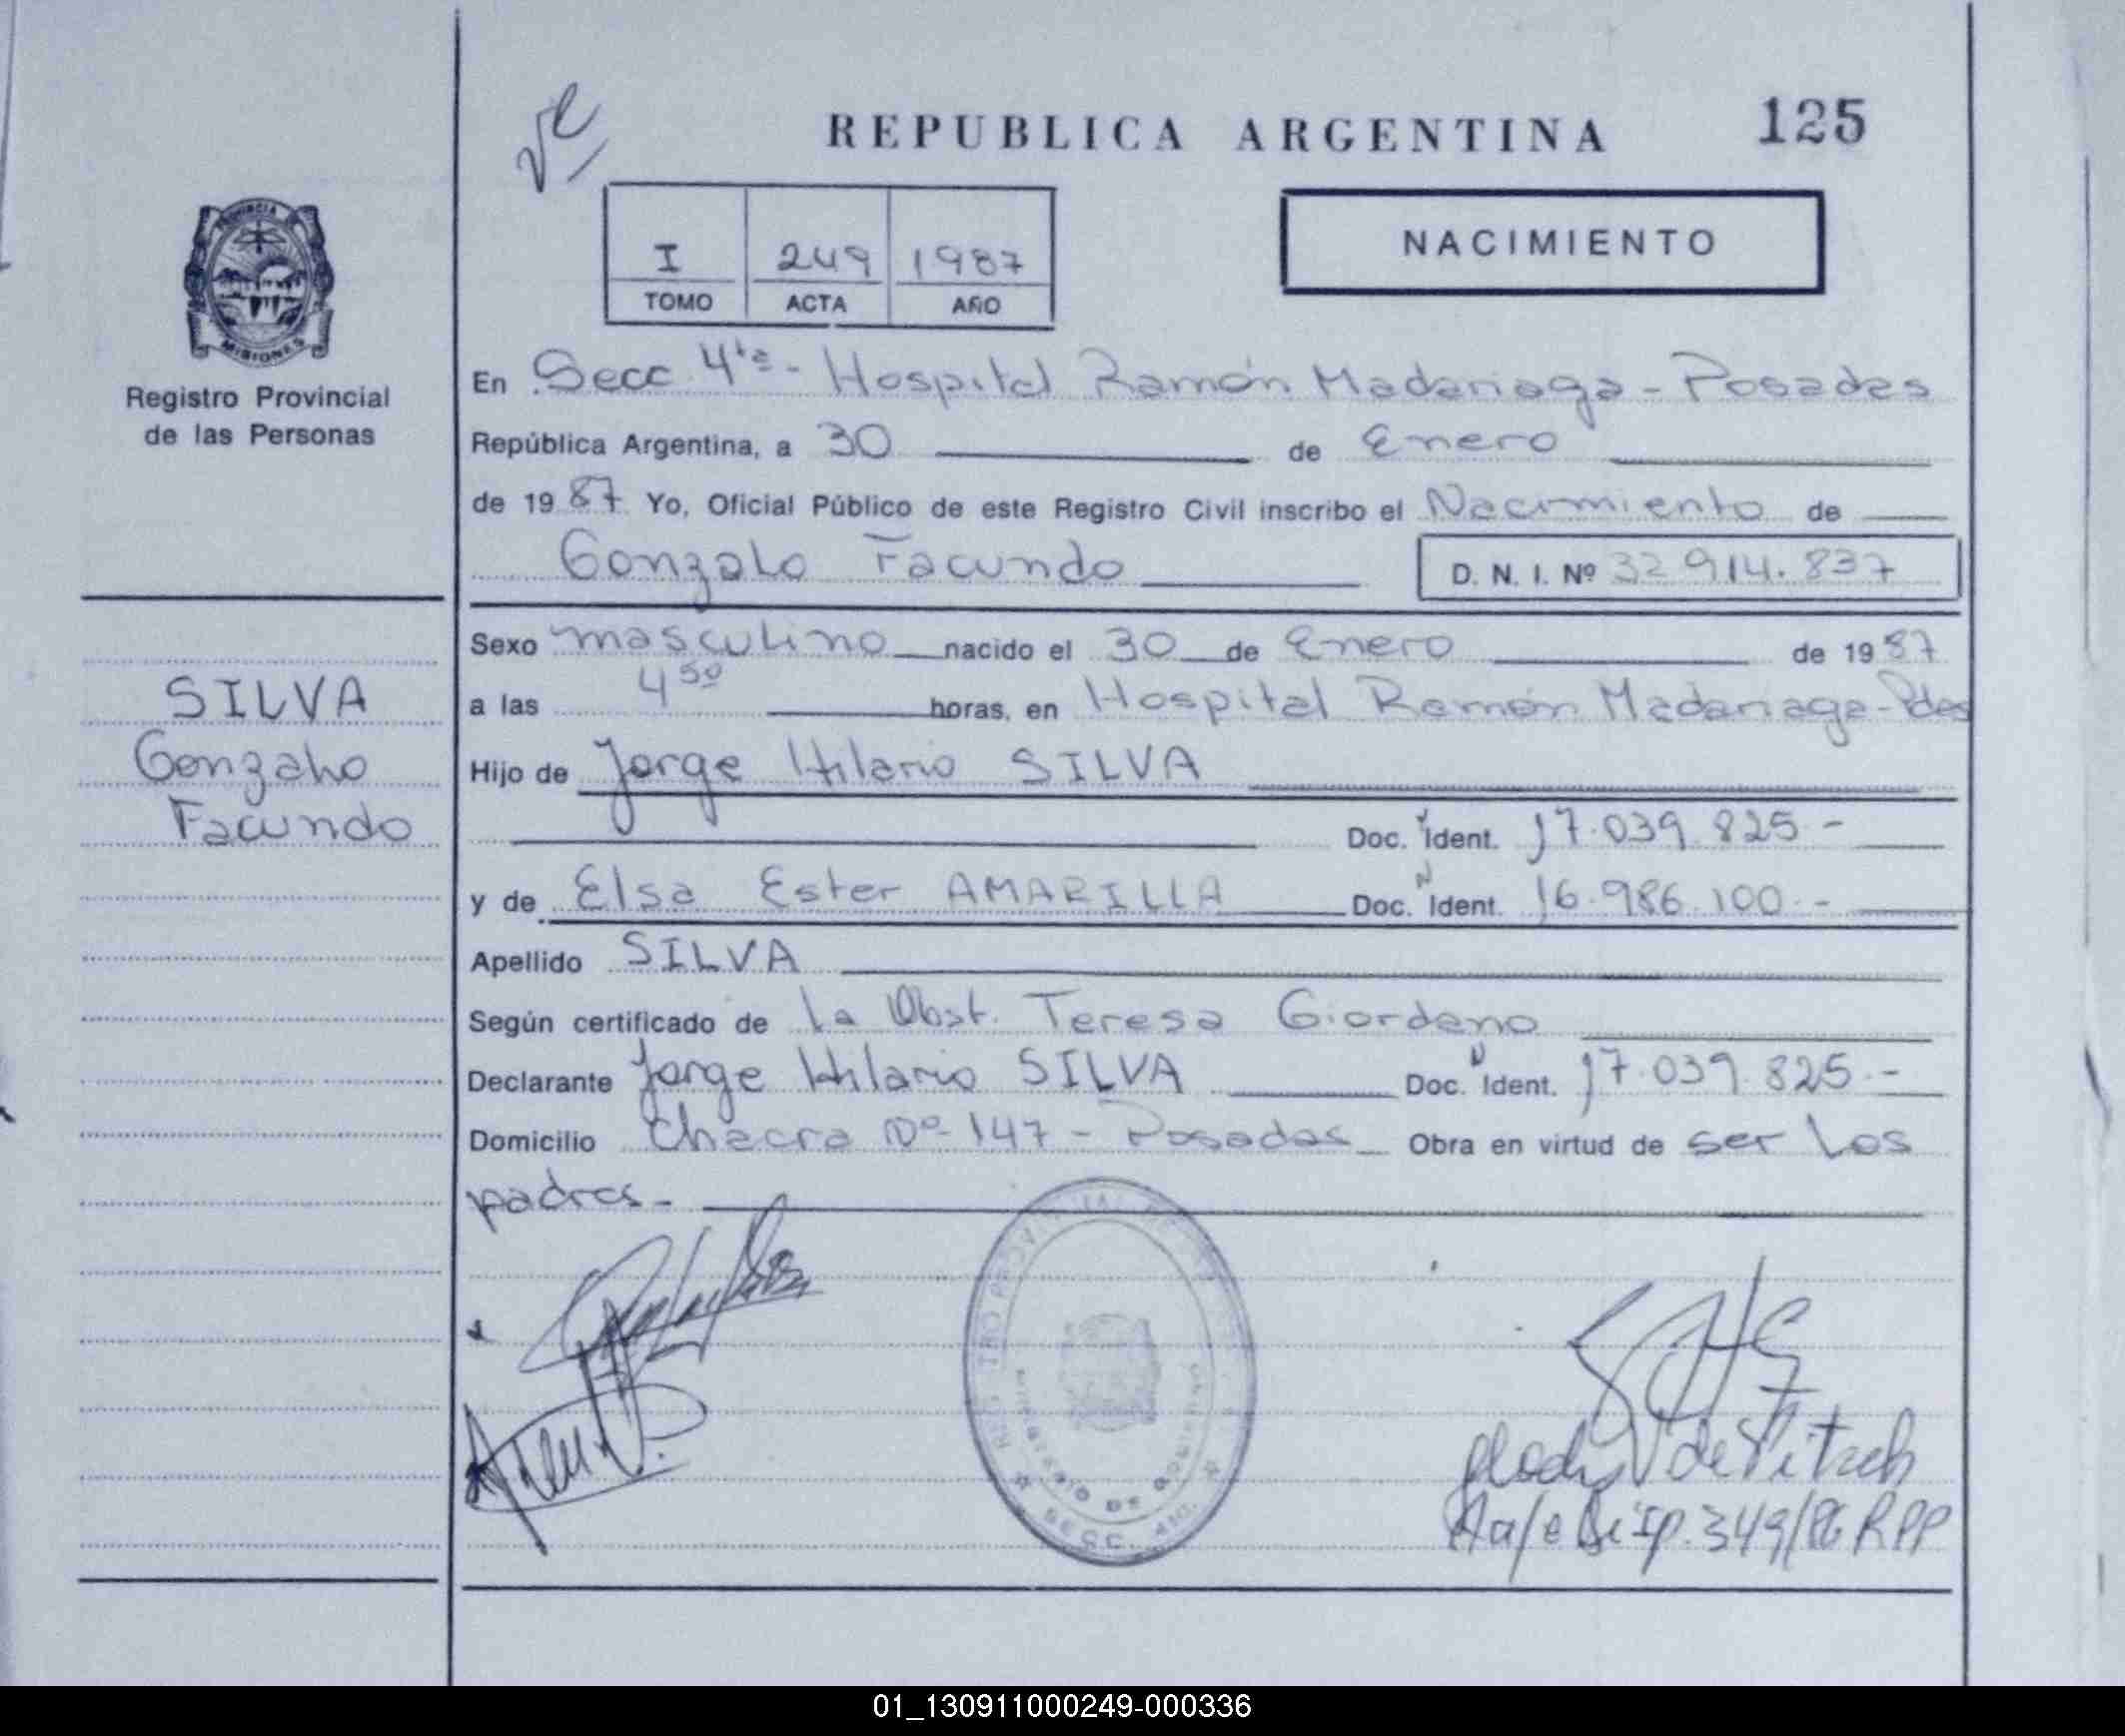 REPUBLICA ARGENTINA
125
NACIMIENTO
I 249 1987
TOMO ACTA AÑO
PROVINCIA
MISIONES
Registro Provincial
de las Personas
SILVA
Gonzalo
Facundo
En Secc. 4ta - Hospital Ramón Madariaga - Posadas
República Argentina, a 30 de Enero
de 1987 Yo, Oficial Público de este Registro Civil inscribo el Nacimiento de
Gonzalo Facundo D. N. I. Nº 32 914.837
Sexo masculino nacido el 30 de Enero de 1987
a las 4 50 horas, en Hospital Ramón Madariaga - Pdas
Hijo de Jorge Hilario SILVA
Doc. Ident. 17.039.825.-
y de Elsa Ester AMARILLA Doc. Ident. 16.986.100.-
Apellido SILVA
Según certificado de La Obst. Teresa Giordano
Declarante Jorge Hilario SILVA Doc. Ident. 17.039.825.-
Domicilio Chacra Nº 147 - Posadas Obra en virtud de ser los
padres.-
SECC. 4
MINISTERIO DE GOBIERNO
de
349/86 RPP
01_130911000249-000336